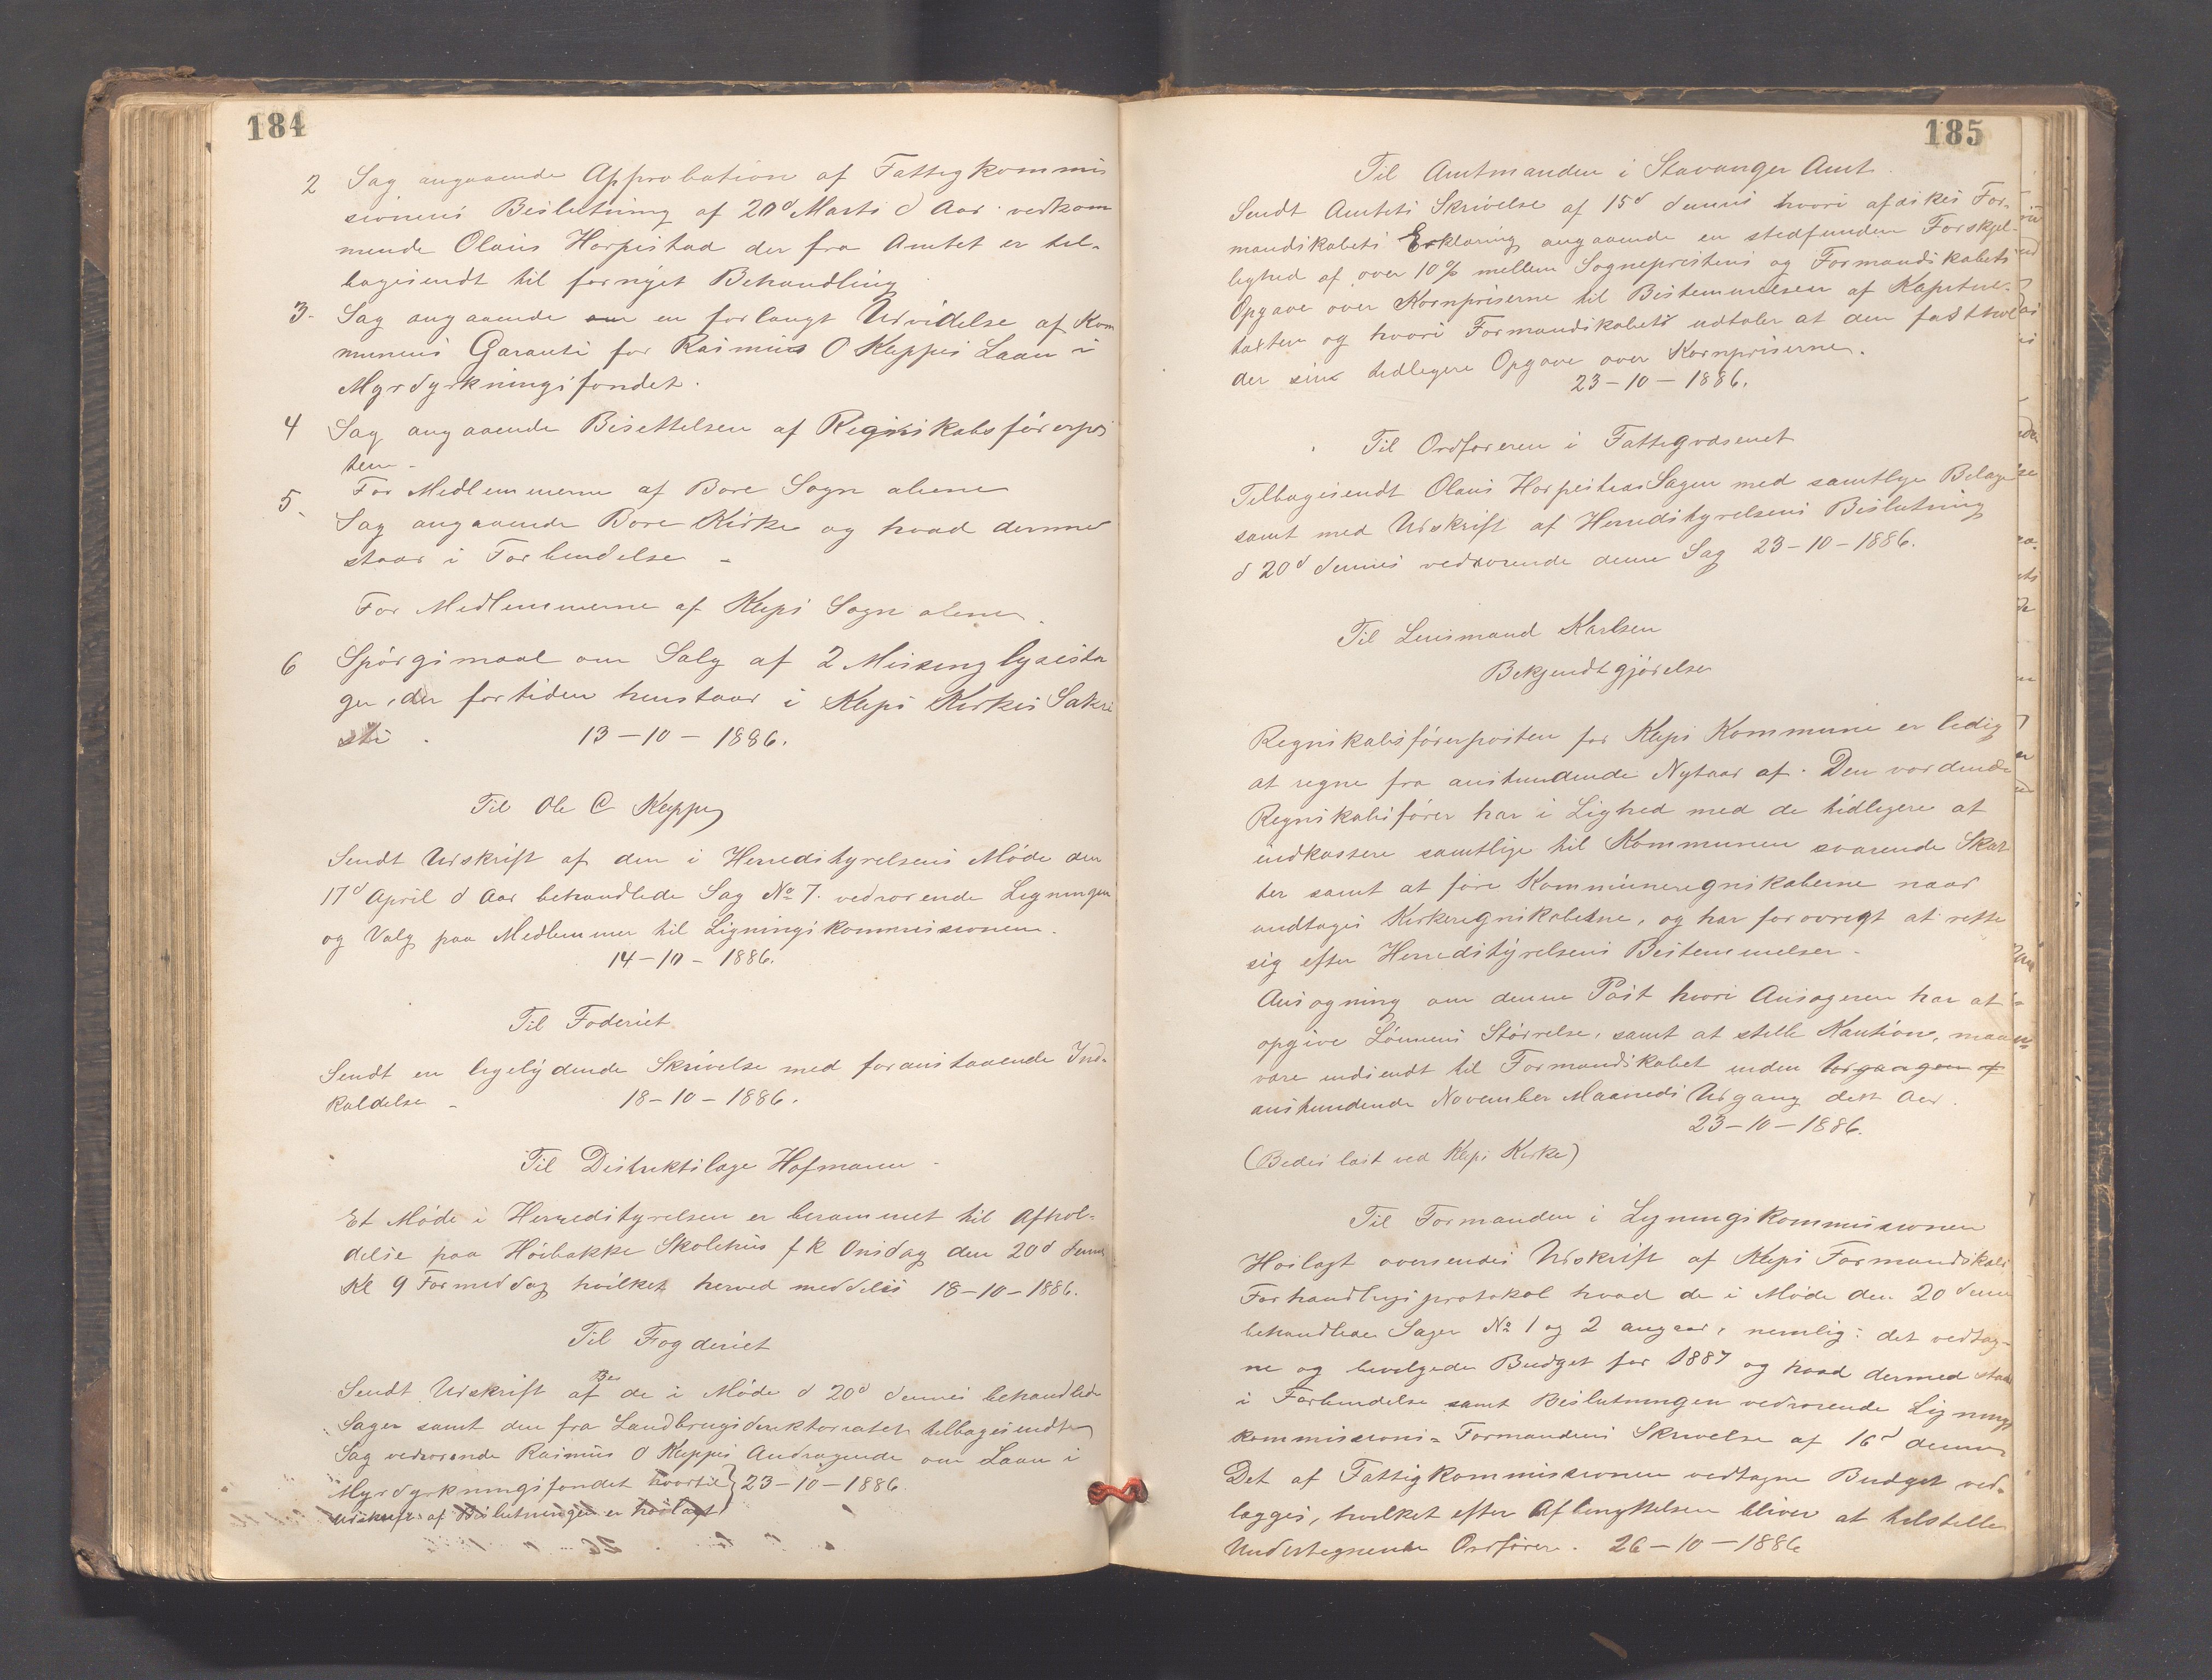 184
2 Sag angaaende Approbation af Fattigkommis
sionens Beslutning af 20d Marts d Aar vedkom
mende Olaus Horpestad der fra Amtet er til-
bagesendt til fornyet Behandling
3- Sag angaaende en forlangt Udvidelse af Kom
munens Garanti for Rasmus O Kleppes Laan i
Myrdyrkningsfondet.
4 Sag angaaende Besettelsen af Regnskabsförerpos
ten -
5. For Medlemmerne af Bore Sogn alene
Sag angaaende Bore Kirke og hvad dermed
staar i Forbindelse -
For Medlemmerne af Kleps Sogn alene.
6 Spörgsmaal om Salg af 2 Messing lysesta
ger, der fortiden henstaar i Kleps Kirkes Sakri
sti. 13-10-1886.
Til Ole C Kleppe
Sendt Udskrift af den i Herredstyrelsens Möde den
17d April d Aar behandlede Sag No 7. vedrorende Ligningen
og Valg paa Medlemmer til Ligningskommissionen.
14-10-1886.
Til Foderiet
Sendt en ligelydende Skrivelse med foranstaaende Ind-
kaldelse - 18-10-1886.
Til Distriktslæge Hofmann -
Et Möde i Herredstyrelsen er berammet til Afhol-
delse paa Höibakke Skolehus f k Onsdag den 20d dennes
Kl 9 Formiddag hvilket herved meddeles 18-10-1886.
Til Fogderiet
Sendt Udskrift af de i Möde d 20d dennes behandlede
Sager samt den fra Landbrugsdirektoratet tilbagesendte
Sag vedrorende Rasmus O Kleppes Andragende om Laan i
Myrdyrkningsfondet hvortil } 23-10-1886.
Udskrift af Beslutningen er hoslagt
185
Til Amtmanden i Stavanger Amt.
Sendt Amtets Skrivelse af 15d dennes hvori afæskes For-
mandskabets Erklæring angaaende en stedfunden Forskjel-
lighed af over 10% mellem Sogneprestens og Formandskabets
Opgave over Kornpriserne til Bestemmelsen af Kapitels-
taxten og hvori Formandskabet udtaler at den fasthol
der sine tidligere Opgave over Kornpriserne.
23-10-1886.
Til Ordföreren i Fattigvæsenet
Tilbagesendt Olaus Horpestad Sagen med samtlige Bilage
samt med Udskrift af Herredstyrelsens Beslutning
d 20d dennes vedrorende denne Sag 23-10-1886.
Til Lensmand Karlsen
Bekjendtgjörelse
Regnskabsförerposten for Kleps Kommune er ledig
at regne fra anstundende Nytaar af. Den vordende
Regnskabsförer har i Lighed med de tidligere at
indkassere samtlige til Kommunen svarende Skat
ter samt at före Kommuneregnskaberne naar
undtages Kirkeregnskaberne, og har forovrigt at rette
sig efter Herredstyrelsens Bestemmelser -
Ansögning om denne Post hvori Ansögeren har at
opgive Lönnens Störrelse, samt at stille Kaution, maa
være indsendt til Formandskabet inden Udgangen af
anstundende November Maaneds Udgang dett Aar.
23-10-1886.
(Bedes læst ved Kleps Kirke)
Til Formanden i Ligningskommissionen
Hoslagt oversendes Udskrift af Kleps Formandskabs
Forhandlingsprotokol hvad de i Möde den 20 dennes
behandlede Sager No 1 og 2 angaar, nemlig: det vedtag-
ne og bevilgede Budget for 1887 og hvad dermed staar
i Forbindelse samt Beslutningen vedrorende Lignings
kommissions-Formandens Skrivelse af 16d dennes
Det af Fattigkommissionen vedtagne Budget ved-
lægges, hvilket efter Afbenyttelsen bliver at tilstille
Undertegnende Ordförer. 26-10-1886